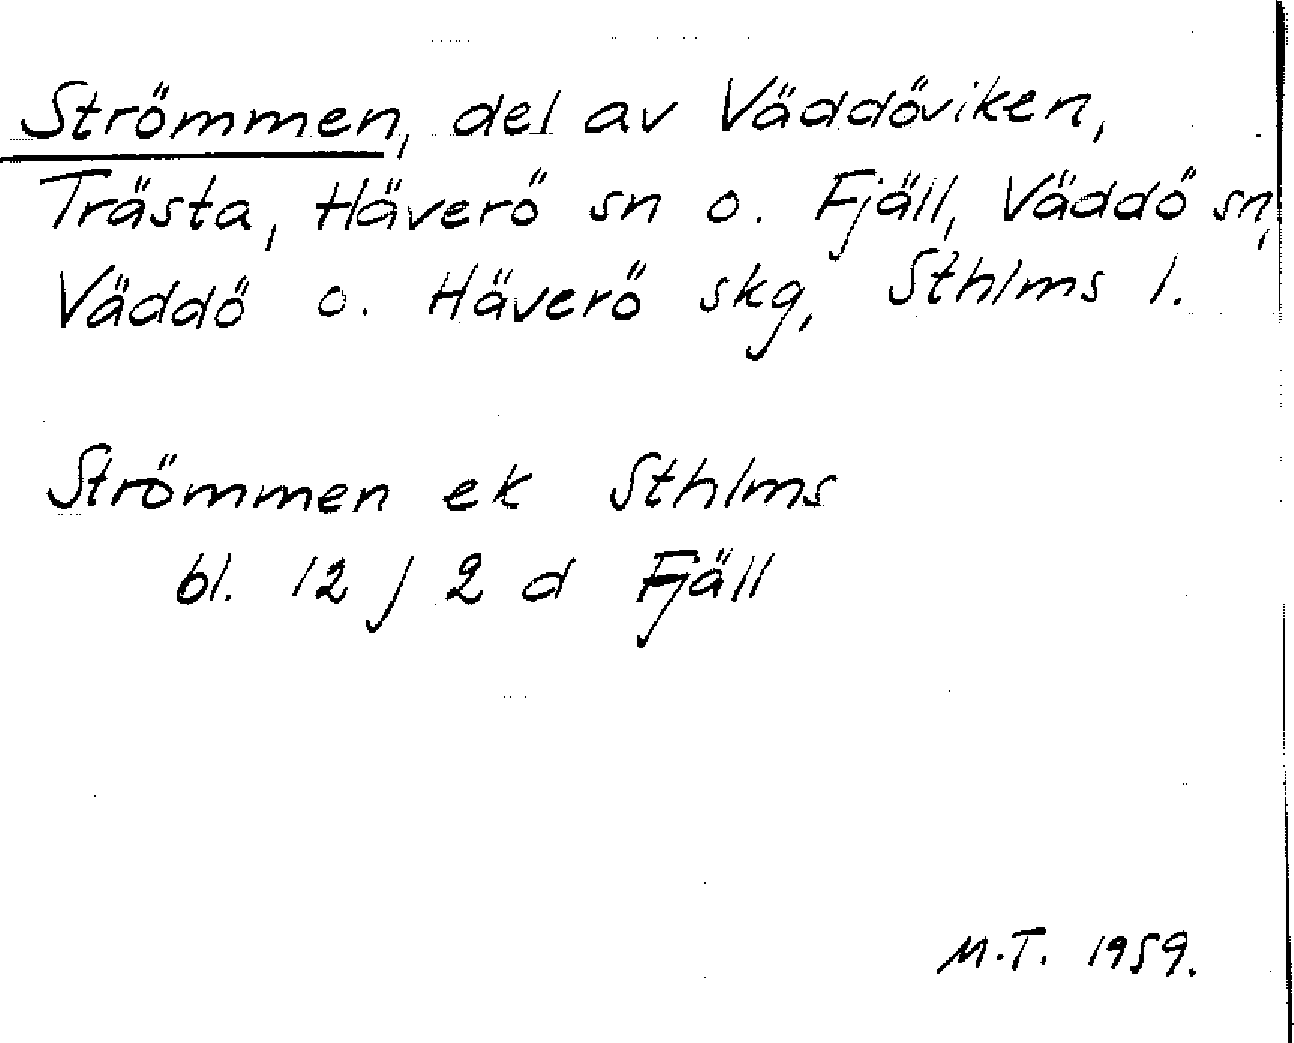 Strömmen, del av Väddöviken,
Trästa, Häverö sn o. Fjäll, Väddö sn,
Väddö o. Häverö skg, Sthlms l.
Strömmen ek Sthlms
bl. 12 j 2 d Fjäll
M.T. 1959.